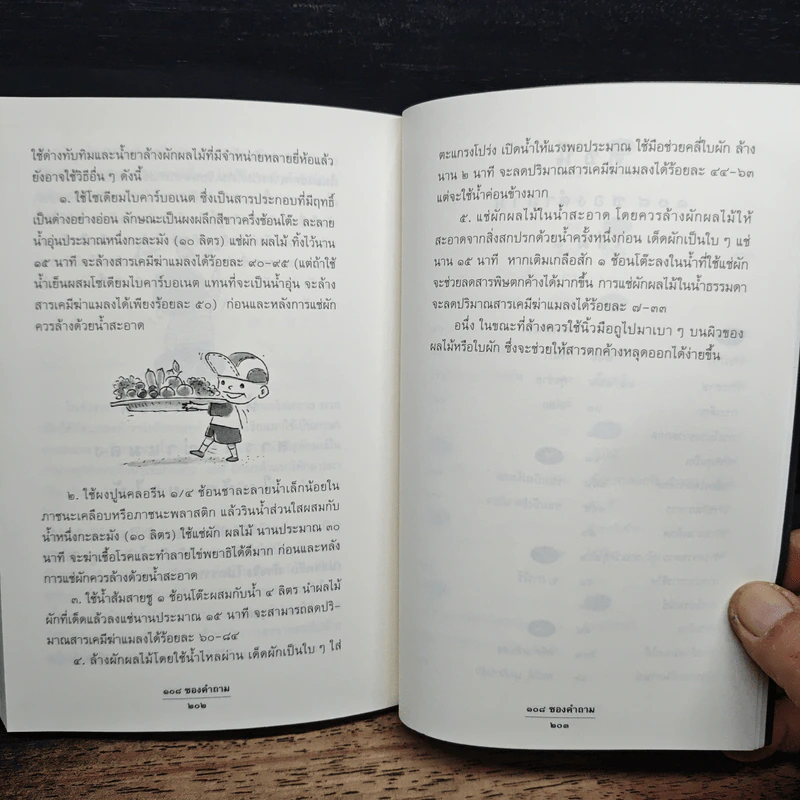 ใช้ด่างทับทิมและน้ำยาล้างผักผลไม้ที่มีจำหน่ายหลายยี่ห้อแล้ว
ยังอาจใช้วิธีอื่น ๆ ดังนี้
๑. ใช้โซเดียมไบคาร์บอเนต ซึ่งเป็นสารประกอบที่มีฤทธิ์
เป็นด่างอย่างอ่อน ลักษณะเป็นผงผลึกสีขาวครึ่งช้อนโต๊ะ ละลาย
น้ำอุ่นประมาณหนึ่งกะละมัง (๑๐ ลิตร) แช่ผัก ผลไม้ ทิ้งไว้นาน
๑๕ นาที จะล้างสารเคมีฆ่าแมลงได้ร้อยละ ๙๐-๙๕ (แต่ถ้าใช้
น้ำเย็นผสมโซเดียมไบคาร์บอเนต แทนที่จะเป็นน้ำอุ่น จะล้าง
สารเคมีฆ่าแมลงได้เพียงร้อยละ ๕๐) ก่อนและหลังการแช่ผัก
ควรล้างด้วยน้ำสะอาด
๒. ใช้ผงปูนคลอรีน ๑/๔ ช้อนชาละลายน้ำเล็กน้อยใน
ภาชนะเคลือบหรือภาชนะพลาสติก แล้วรินน้ำส่วนใสผสมกับ
น้ำหนึ่งกะละมัง (๑๐ ลิตร) ใช้แช่ผัก ผลไม้ นานประมาณ ๓๐
นาที จะฆ่าเชื้อโรคและทำลายไข่พยาธิได้ดีมาก ก่อนและหลัง
การแช่ผักควรล้างด้วยน้ำสะอาด
๓. ใช้น้ำส้มสายชู ๑ ช้อนโต๊ะผสมกับน้ำ ๔ ลิตร นำผลไม้
ผักที่เด็ดแล้วลงแช่นานประมาณ ๑๕ นาที จะสามารถลดปริ-
มาณสารเคมีฆ่าแมลงได้ร้อยละ ๖๐-๘๔
๔. ล้างผักผลไม้โดยใช้น้ำไหลผ่าน เด็ดผักเป็นใบ ๆ ใส่
๑๐๘ ซองคำถาม
๒๐๒
ตะแกรงโปร่ง เปิดน้ำให้แรงพอประมาณ ใช้มือช่วยคลี่ใบผัก ล้าง
นาน ๒ นาที จะลดปริมาณสารเคมีฆ่าแมลงได้ร้อยละ ๕๔-๖๓
แต่จะใช้น้ำค่อนข้างมาก
๕. แช่ผักผลไม้ในน้ำสะอาด โดยควรล้างผักผลไม้ให้
สะอาดจากสิ่งสกปรกด้วยน้ำครั้งหนึ่งก่อน เด็ดผักเป็นใบ ๆ แช่
นาน ๑๕ นาที หากเติมเกลือสัก ๑ ช้อนโต๊ะลงในน้ำที่ใช้แช่ผัก
จะช่วยลดสารพิษตกค้างได้มากขึ้น การแช่ผักผลไม้ในน้ำธรรมดา
จะลดปริมาณสารเคมีฆ่าแมลงได้ร้อยละ ๗-๓๓
อนึ่ง ในขณะที่ล้างควรใช้นิ้วมือถูไปมาเบา ๆ บนผิวของ
ผลไม้หรือใบผัก ซึ่งจะช่วยให้สารตกค้างหลุดออกได้ง่ายขึ้น
๑๐๘ ซองคำถาม
๒๐๓